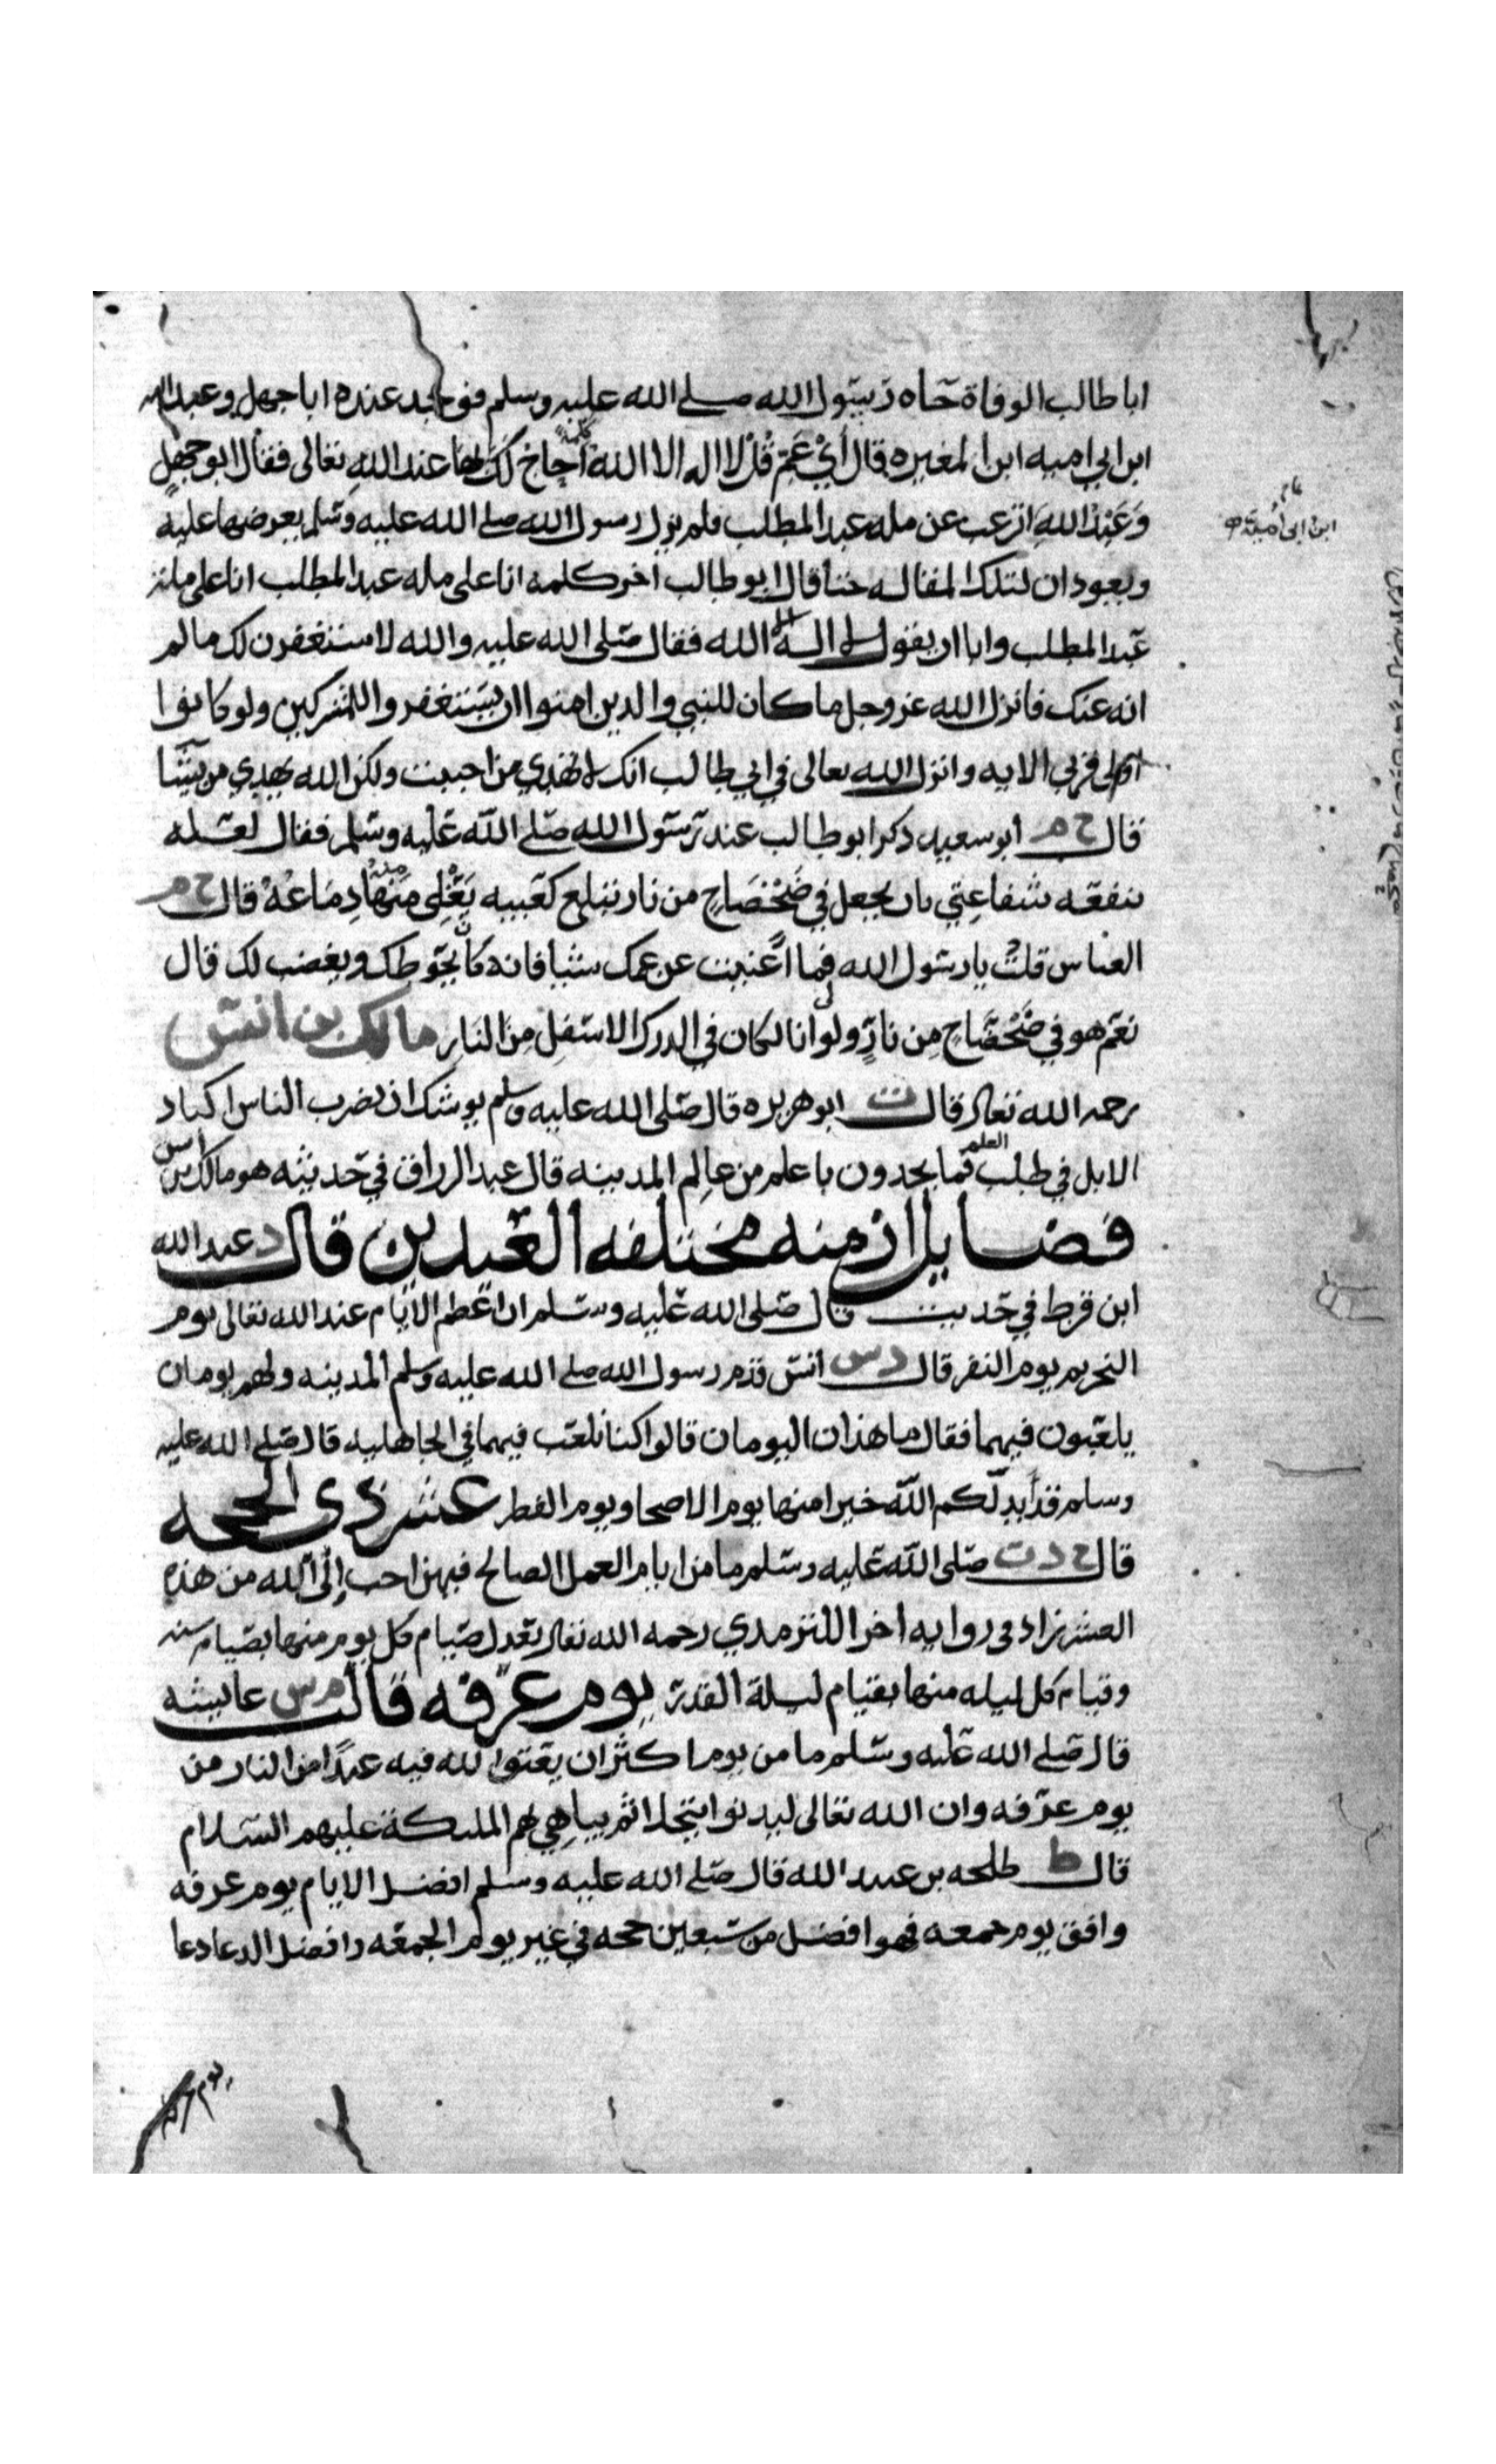 ابا طالب الوفاة جاه رسول الله صلى الله عليه وسلم فوجد عنده ابا جهل وعبد الله
ابن ابي اميه ابن المغيره قال أَيْ عَمِّ قُلْ لا اله الا الله كلمة احاج لَكَ بها عند اللهِ تعالى فقال ابو جهلٍ
وَعَبْدُ اللهِ اترغب عن مله عبد المطلب فلم يزل رسول الله صلى الله عليه وسلم يعرضها عليه
ويعودان لتلك المقاله حتا قال ابو طالب اخر كلمه انا على مله عبد المطلب انا على ملة
عبد المطلب وابا ان يقول لا اله الا الله فقال صلى الله عليه والله لاستغفرن لك ما لم
انه عنك فانزل الله عز وجل ما كان للنبي والدين امنوا ان يستغفروا للمشركين ولو كانوا
اولى قربي الايه وانزل الله تعالى في ابي طالب انك لا تهدي من احببت ولكن الله يهدي من يشا
قال ح م أبو سعيد ذكر ابو طالب عند رسول الله صلى الله عليه وسلم فقال لعله
تنفعه شفاعتي بان يجعل في ضَحْضَاحٍ من نار تبلع كعبيه يَغْلِى مِنْهَا دِمَاغُهُ قال ح م
العباس قلت يا رسول الله فما اغنيت عن عمك شيا فانه كان يحوطك ويغضب لك قال
نعم هو في ضَحْضَاحٍ مِن نارٍ ولولا انا لكان في الدرك الاسفلِ مِنَ النارِ مالك بن انس
رحمه الله تعالى قال ت ابو هريره قال صلى الله عليه وسلم يوشك ان يضرب الناس اكباد
الابل في طلب العلم فما يجدون باعلم من عالم المدينه قال عبد الرزاق في حديثه هو مالك بن انس
فضايل ازمنه مختلفه العيدين قال د عبد الله
ابن قرط في حديث قال صلى الله عليه وسلم ان اعظم الايام عند الله تعالى يوم
النحر يم يوم النفر قال د س انس قدم رسول الله صلى الله عليه وسلم المدينه ولهم يومان
يلعبون فيهما فقال ما هذان اليومان قالوا كنا نلعب فيهما في الجاهليه قال صلى الله عليه
وسلم قد أبدلكم الله خيرا منها يوم الاضحا ويوم الفطر عشر ذى الحجه
قال ح د ت صلى الله عليه وسلم ما من ايام العمل الصالح فيهن احب إلى الله من هذه
العشر زاد فى روايه اخرا للترمدي رحمه الله تعالى يعدل صيام كل يوم منها بصيام سنه
وقيام كل ليله منها بقيام ليلة القدر يوم عرفه قالت م س عايشه
قال صلى الله عليه وسلم ما من يوم اكثر ان يعتق الله فيه عبدًا من النار من
يوم عرفه وان الله تعالى ليدنوا يتجلا ثم يباهي بهم الملئكة عليهم السلام
قال ط طلحه بن عبيد الله قال صلى الله عليه وسلم افضل الايام يوم عرفه
وافق يوم جمعه فهوا افضل من سبعين حجه في غير يوم الجمعه وافضل الدعا دعا
يوم عرفه
ابن ابى أمية